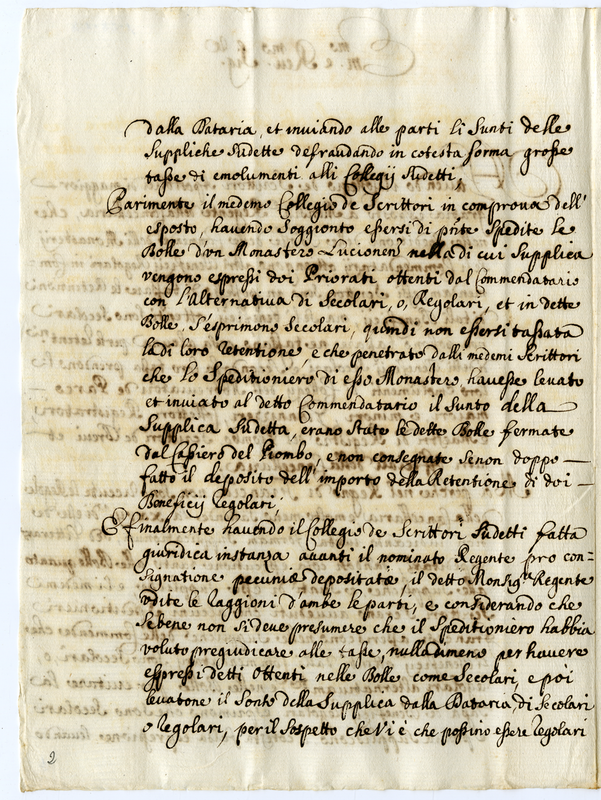 dalla Dataria, et inuiando alle parti li Sunti delle
Suppliche sudette defraudando in cotesta forma grosse
tasse di emolumenti alli Collegij sudetti;
Parimente il medemo Collegio de Scrittori in comprova dell'
esposto, hauendo soggionto essersi di pnte spedite le
Bolle d'vn Monastero Lucionen nella di cui Supplica
vengono espressi doi Priorati ottenti dal Commendatario
con l'alternatiua di Secolari, o, Regolari, et in dette
Bolle, s'esprimono Secolari, quindi non essersi tassata
la di loro retentione, e che penetrato dalli medemi Scrittori
che lo Speditioniero di esso Monastero hauesse leuato
et inuiato al detto Commendatario il Sunto della
Supplica sudetta, erano state le dette Bolle fermate
dal Cassiero del Piombo, e non consegnate se non doppo
fatto il deposito dell'importo della Retentione di doi
Beneficij regolari;
E finalmente hauendo il Collegio de Scrittori sudetti fatta
giuridica instanza auanti il nominato Regente pro con=
signatione pecuniæ depositatæ, il detto Monsig.re Regente
vdite le raggioni d'ambe le parti, e considerando che
sebene non si deue presumere che il Speditioniero habbia
voluto pregiudicare alle tasse, nulladimeno per hauere
espressi detti ottenti nelle Bolle come Secolari, e poi
leuatone il Sonto della Supplica dalla Dataria, di Secolari
o regolari, per il sospetto che vi è che possino essere regolari
2